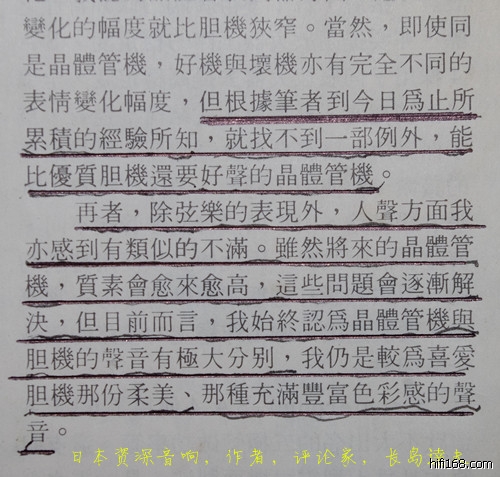 變化的幅度就比胆機狹窄。當然，即使同
是晶體管機，好機與壞機亦有完全不同的
表情變化幅度，但根據筆者到今日爲止所
累積的經驗所知，就找不到一部例外，能
比優質胆機還要好聲的晶體管機。
再者，除弦樂的表現外，人聲方面我
亦感到有類似的不滿。雖然將來的晶體管
機，質素會愈來愈高，這些問題會逐漸解
決，但目前而言，我始終認爲晶體管機與
胆機的聲音有極大分别，我仍是較爲喜愛
胆機那份柔美、那種充滿豐富色彩感的聲
音。
日本资深音响，作者，评论家，长岛达夫
hifi168.com